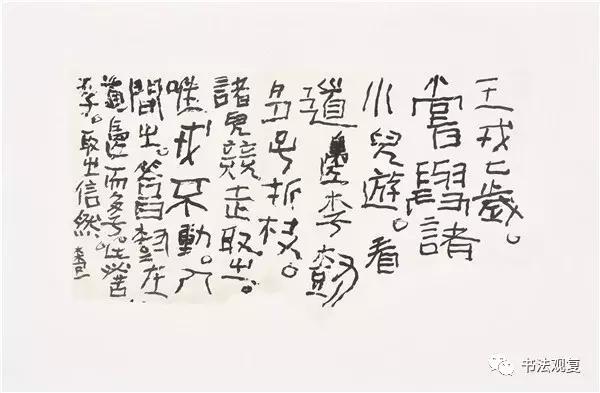 王戎七歲。
嘗與諸
小兒遊。看
道邊李樹
多子折枝。
諸兒競走取之。
唯戎不動。人
問之。答曰樹在
道邊而多子。此必苦
李。取之信然。
书法观复